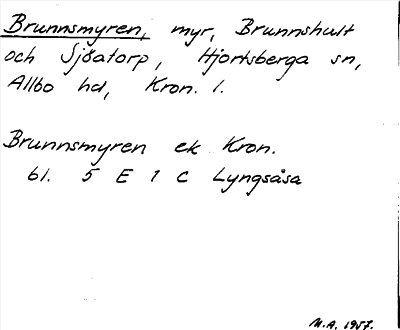 Brunnsmyren, myr, Brunnshult
och Sjöatorp, Hjortsberga sn,
Allbo hd, Kron. l.
Brunnsmyren ek Kron.
bl. 5 E 1 C Lyngsåsa
M.A. 1957.